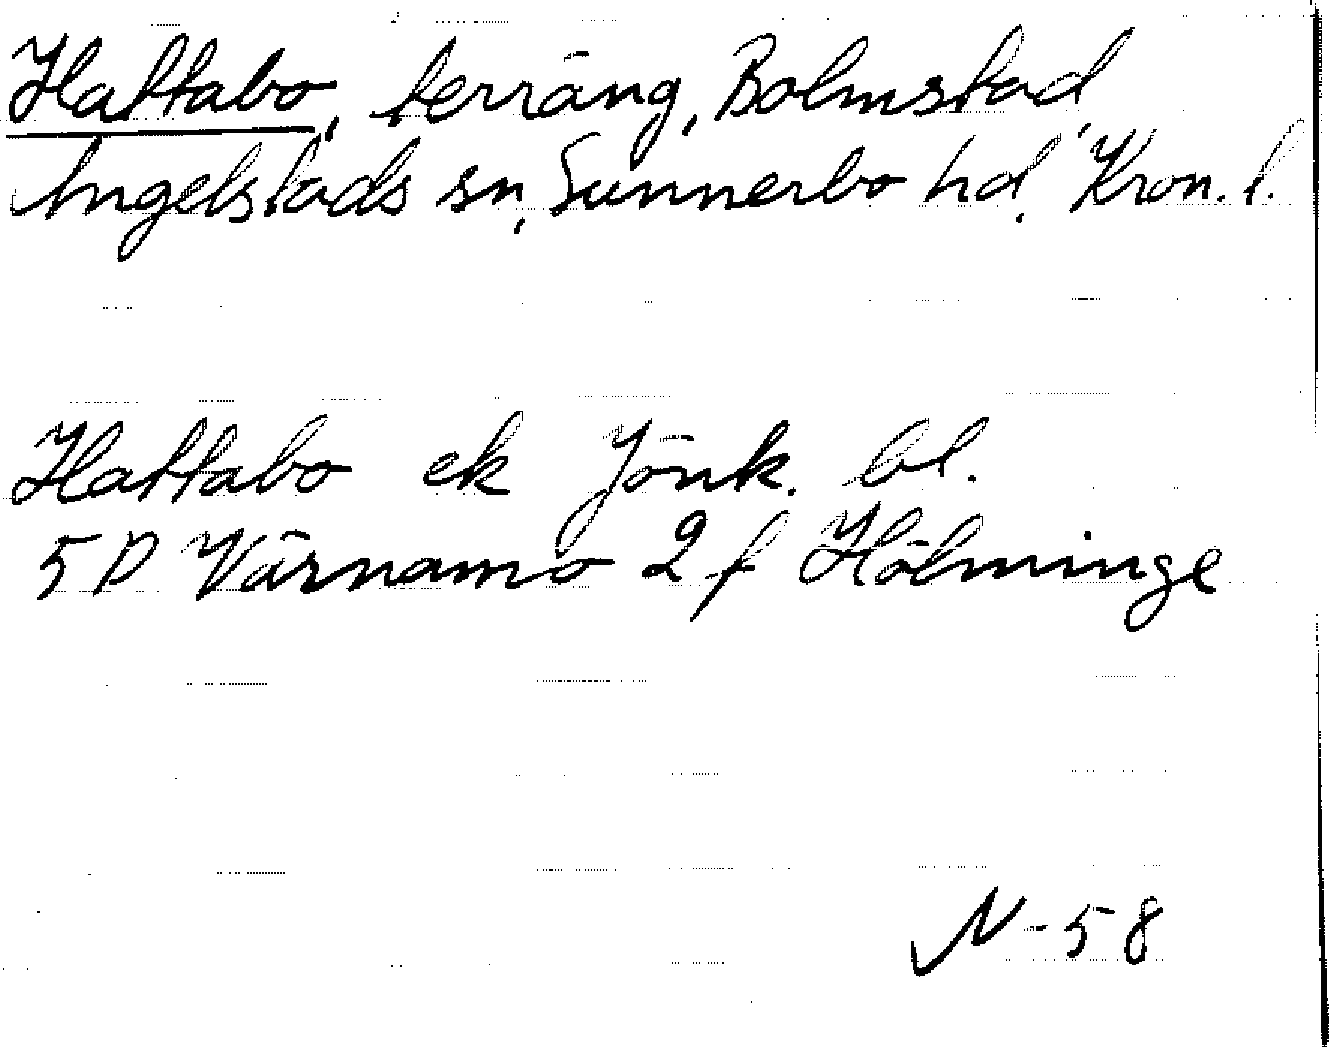 Hattabo, terräng, Bolmstad,
Angelstads sn, Sunnerbo hd, Kron. l.
Hattabo ek Jönk. bl.
5D Värnamo 2 f Hölminge
N-58